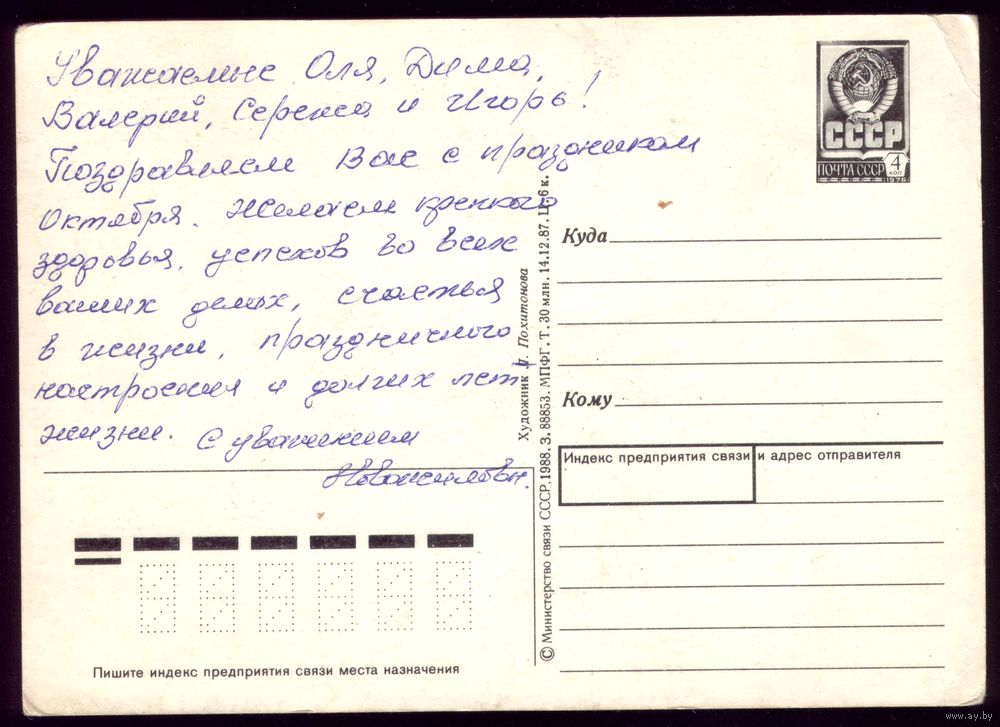 Уважаемые Оля, Дима,
Валерий, Сережа и Игорь!
Поздравляем Вас с праздником
Октября. Желаем крепкого
здоровья, успехов во всех
ваших делах, счастья
в жизни, праздничного
настроения и долгих лет
жизни. С уважением
СССР
ПОЧТА СССР
4
КОП
1978
Куда
Кому
Индекс предприятия связи и адрес отправителя
Художник Л. Похитонова
© Министерство связи СССР. 1988. З. 88853. МПФГ. Т. 30 млн. 14.12.87. Ц. 6 к.
Пишите индекс предприятия связи места назначения
www.ay.by